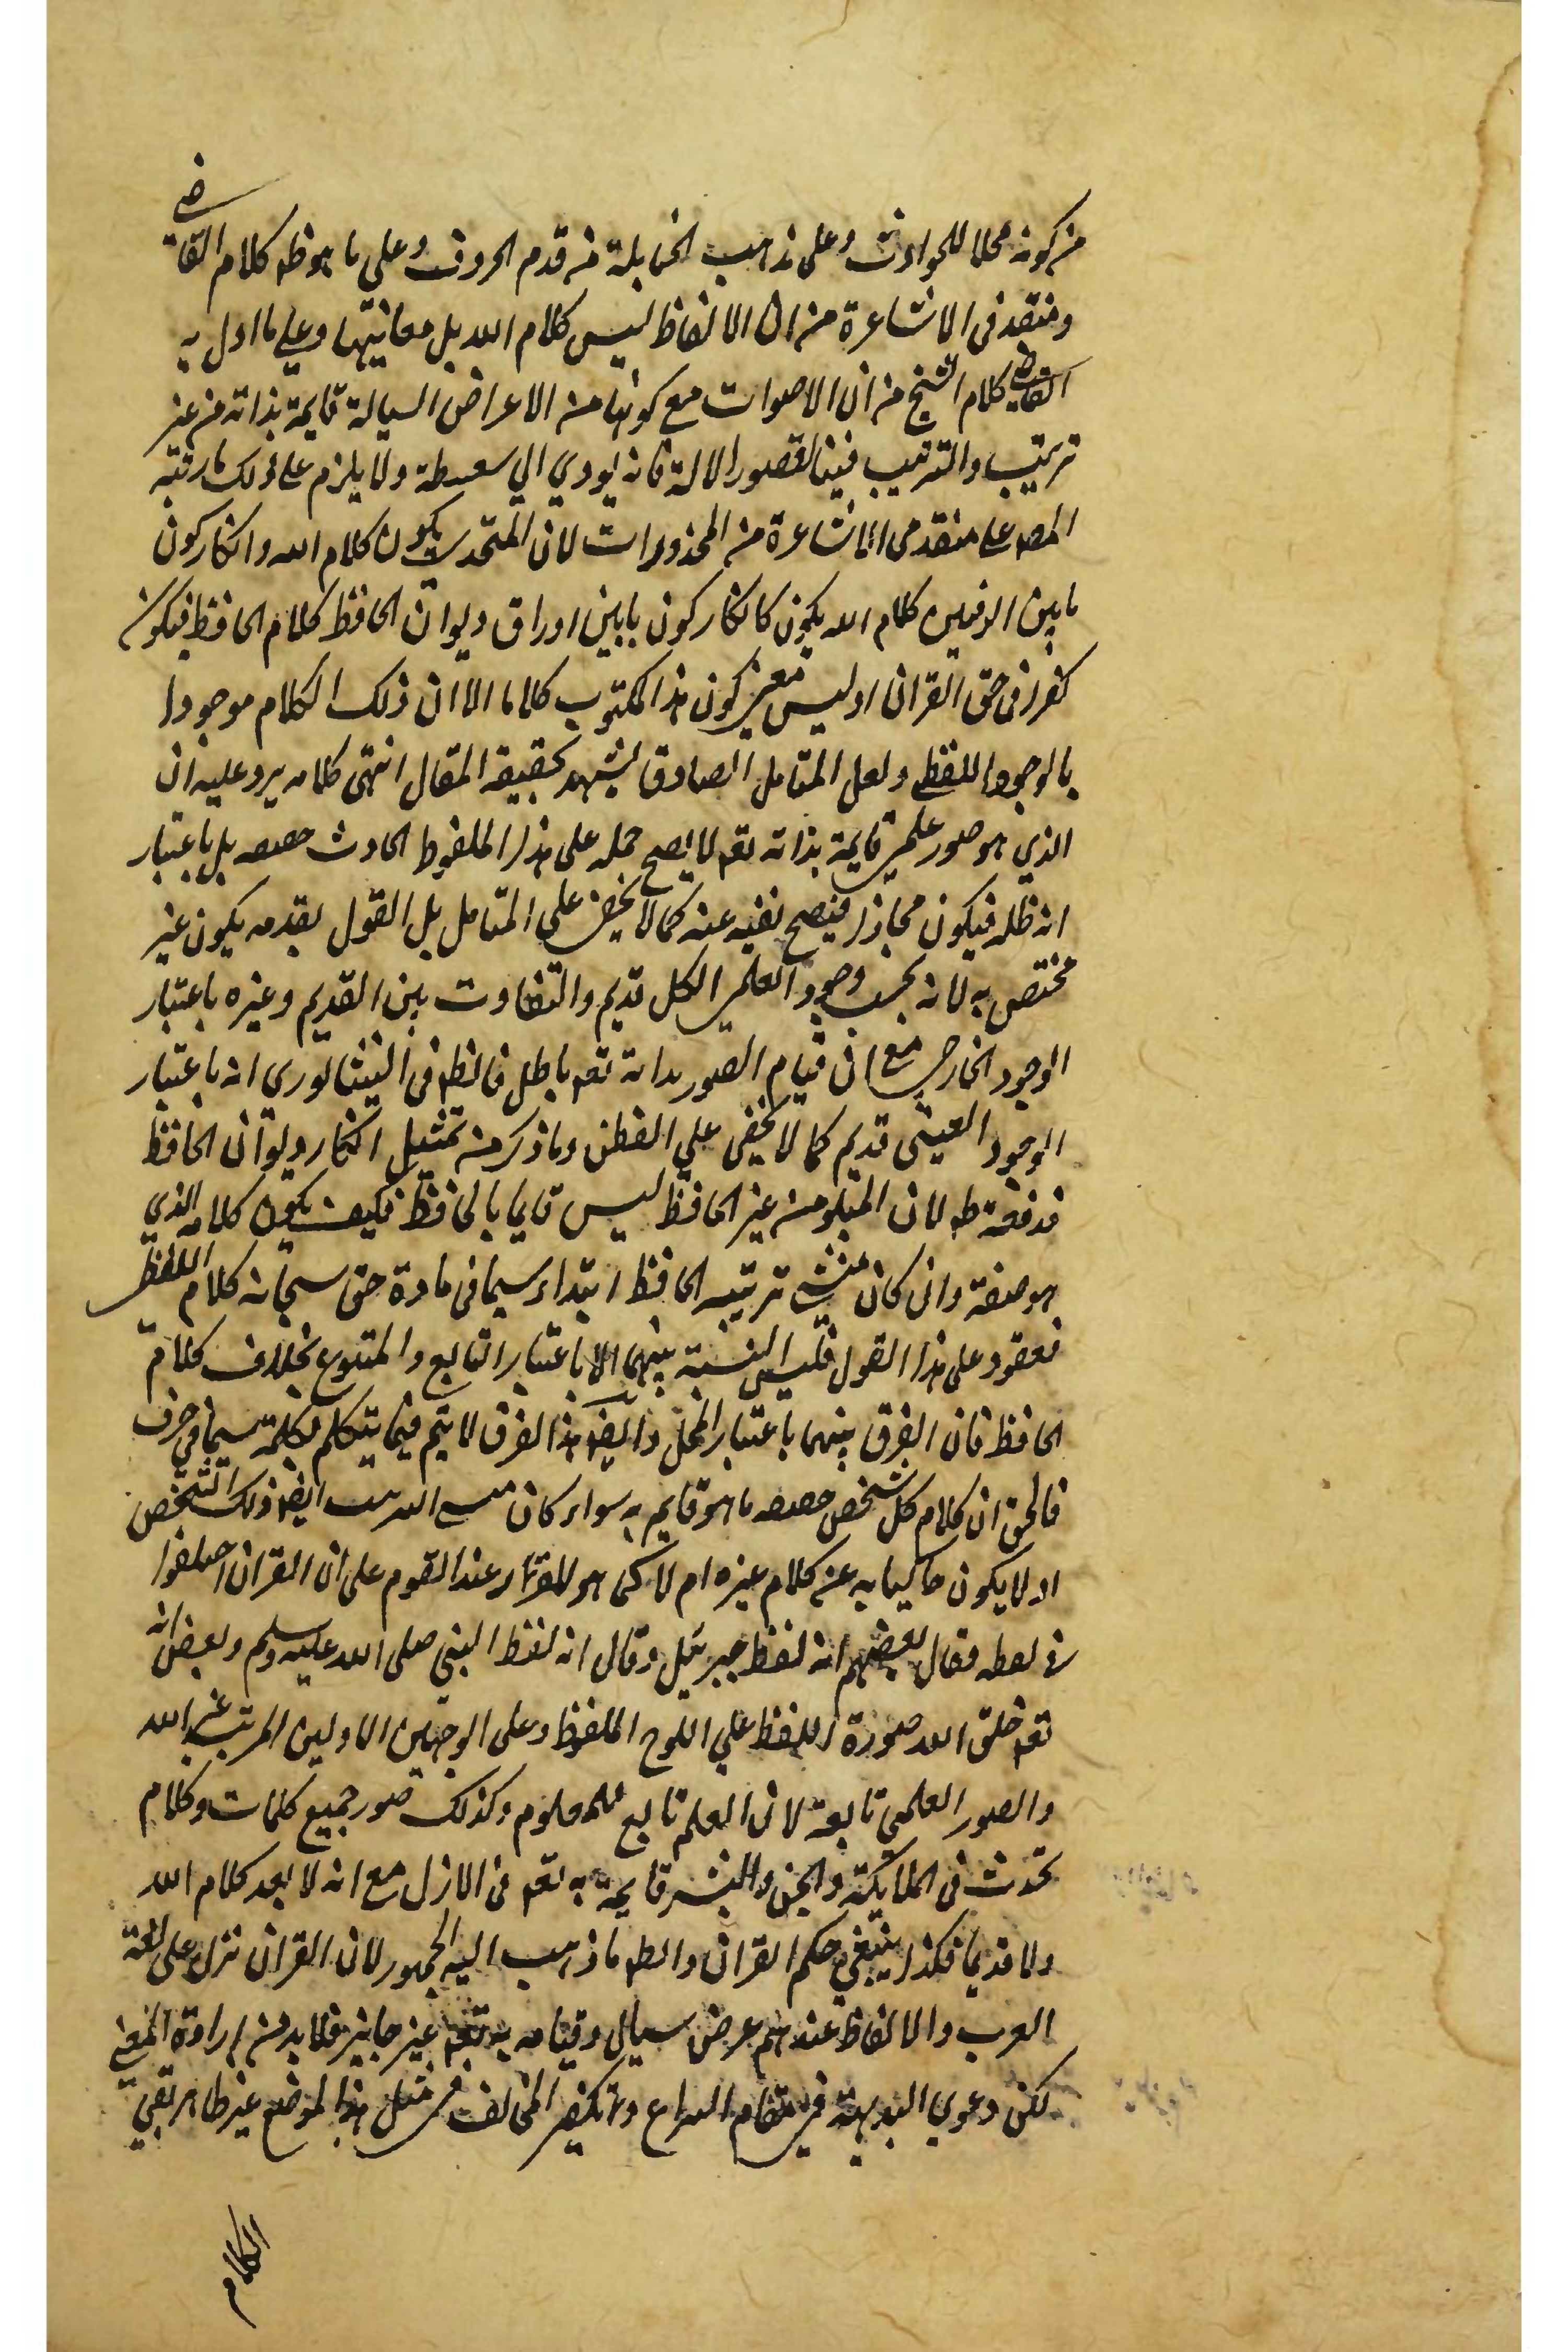 من كونه محلا للحوادث وعلى مذهب الحنابلة من قدم الحروف وعلى ما هو ظ كلام القاضي
ومتقدمى الاشاعرة من ان الالفاظ ليس كلام الله بل معانيها وعلي ما اول به
القاضي كلام الشيخ من ان الاصوات مع كونها من الاعراض السيالة قايمة بذاته من غير
ترتيب والترتيب فينا لقصور الالة فانه يودي الي سفسطة ولا يلزم على ذلك ما رتبه
المص على متقدمى الاشاعرة من المحذورات لان المتحدى يكون كلام الله وانكار كون
ما بين الدفتين كلام الله يكون كانكار كون ما بين اوراق ديوان الحافظ كلام الحافظ فيكون
كفرا فى حق القران اذ ليس معنى كون هذا المكتوب كلاما الا ان ذلك الكلام موجودا
بالوجود اللفظي ولعل المتامل الصادق يشهد بحقيقة المقال انتهى كلامه يرد عليه ان
الذي هو صور علمى قايمة بذاته تعه لا يصح حمله على هذا الملفوظ الحادث حصصه بل باعتبار
انه ظله فيكون مجازا فيصح نفيه عنه كما لا يخفى علي المتامل بل القول بقدمه يكون غير
مختص به لانه بحسب وجود العلمى الكل قديم والتفاوت بين القديم وغيره باعتبار
الوجود الخارجى مع ان قيام الصور بذاته تعه باطل فانظر فى
الوجود العينى قديم كما لا يخفى علي الفطن وما ذكر من تمثيل انكار ديوان الحافظ
فدفعه ظه لان المتلو من غير الحافظ ليس قايما بالحافظ فكيف يكون كلامه الذي
هو صفة وان كان منشى ترتيبه الحافظ ابتداء سيما فى مادة حق سبحانه كلام اللفظى
مفقود على هذا القول فليس النسبة بينهما الا باعتبار التابع والمتبوع بخلاف كلام
الحافظ فان الفرق بينهما باعتبار المحل وايضه هذا الفرق لا يتم فيما يتكلم بكلمة سيما فى حرف
فالحق ان كلام كل شخص حصصه ما هو قايم به سواء كان ايضه ذلك الشخص
او لا يكون حاكيا به عن كلام غيره ام لا كما هو عند القوم على ان القران اختلفوا
فى لفظه فقال بعضهم انه لفظ جبرئيل وقال انه لفظ النبي صلى الله عليه وسلم وبعض انه
تعه خلق الله صورة اللفظ علي اللوح المحفوظ وعلى الوجهين الاولين المرتب غير الله
والصور العلمى تابعة لان العلم تابع للمعلوم وكذلك صور جميع كلمات وكلام
تحدث فى الملايكة والجن والبشر قايمة به تعه فى الازل مع انه لا يعد كلام الله
ولا قديما فكذا ينبغي حكم القران والظه ما ذهب اليه الجمهور لان القران نزل على لغة
العرب والالفاظ عندهم عرض سيال وقيامه به تعه غير جايز فلا بد من ارادة المعنى
لكن دعوي البديهة فى مقام النزاع وتكفير المخالف فى مثل هذا الموضع غير ظاهر بقى
الكلام